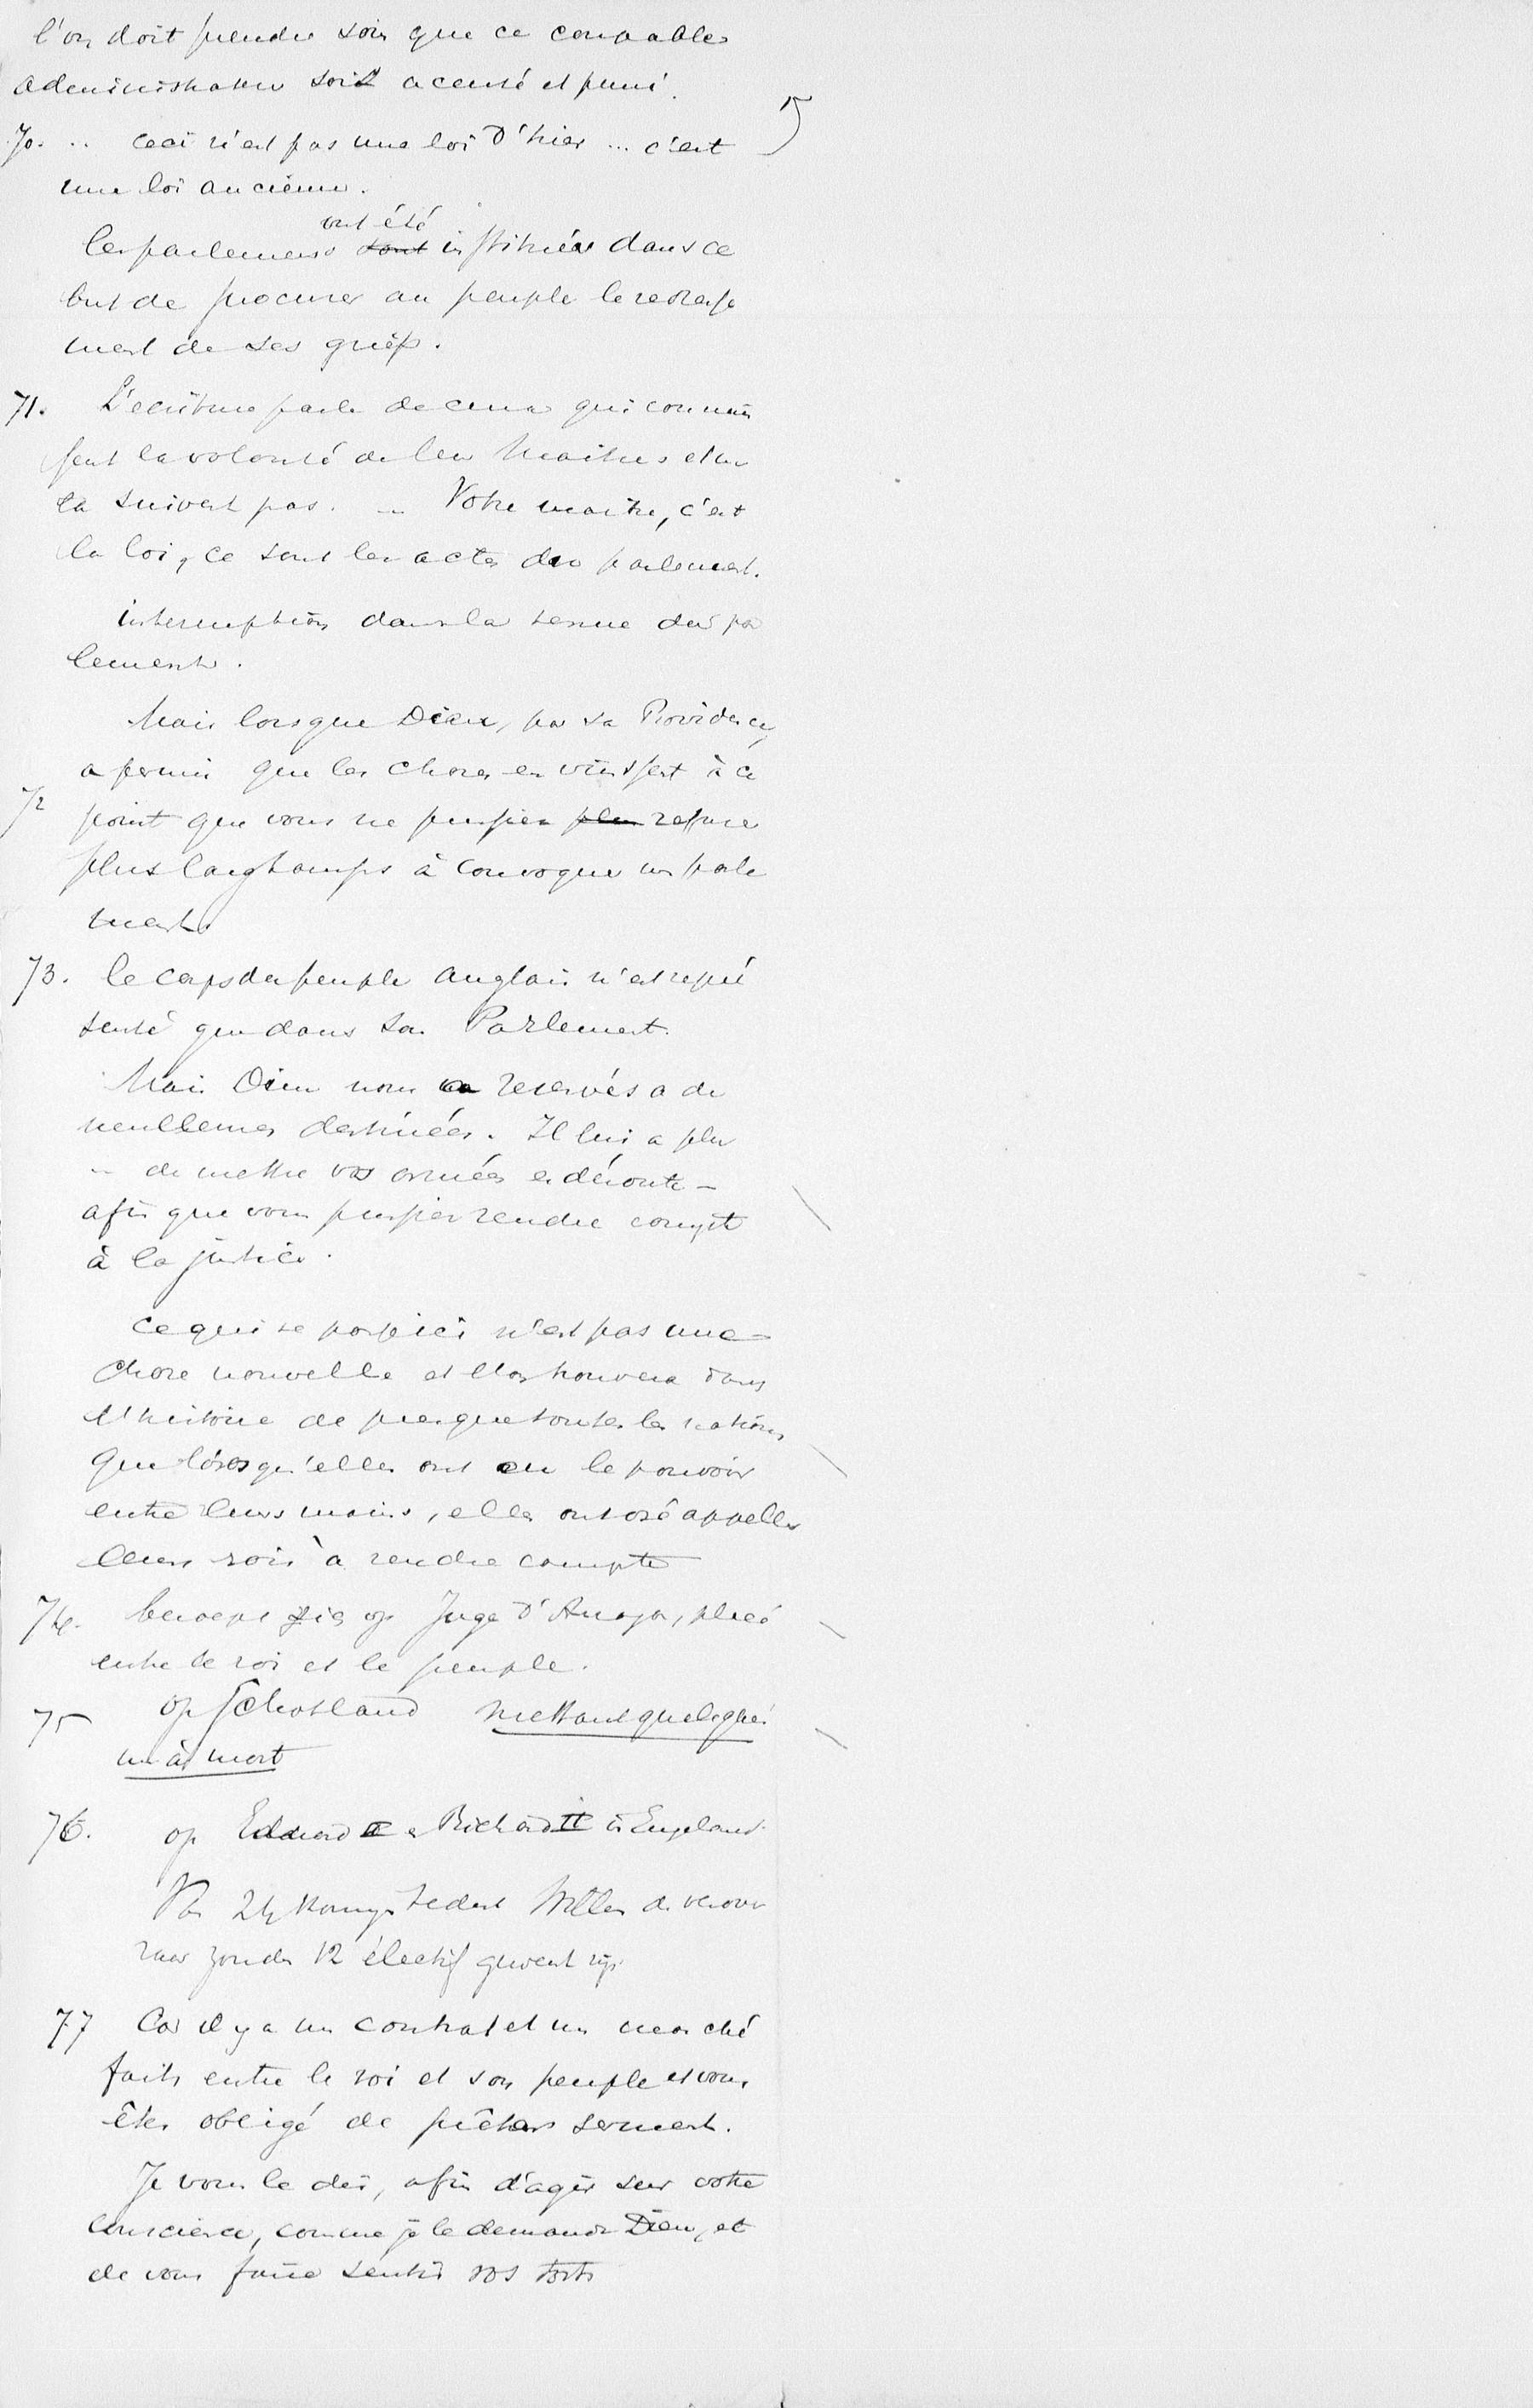 l'on doit prendre soin que ce coupable
administrateur soit accusé et puni.
5
70. .. ceci n'est pas une loi d'hier ... c'est
une loi ancienne.
ont été
les parlements sont institués dans ce
but de procurer au peuple le redresse
ment de ses griefs.
71. L'ecriture parle de ceux qui connais
sent la volonté de leur Maitre et ne
la suivent pas. — Votre maitre, c'est
la loi, ce sont les actes du parlement.
interruption dans la tenue des par
lements.
Mais lorsque Dieu, par sa Providence,
a permis que les choses en vinssent à ce
72 point que vous ne pussiez plus refuser
plus longtemps à convoquer un parle
ment.
73. le corps du peuple anglais n'est repré
senté que dans son Parlement.
Mais Dieu nous a reservés a de
meilleures destinées. Il lui a plu
— de mettre vos armées en déroute —
afin que vous pussiez rendre compte
à la justice.
Ce qui se passe ici n'est pas une
chose nouvelle et l'on trouvera dans
l'histoire de presque toutes les nations
que lorsqu'elles ont eu le pouvoir
entre leurs mains, elles ont osé appeller
leurs rois à rendre compte
74. beroept zich op Juge d'Aragon, placé
entre le roi et le peuple.
75 op Schotland mettant quelques
un à mort
76. op Eduard II en Richard II in Engeland.
Van 24 Konings sedert Willem de verove
raar zouden 12 électif geweest zijn
77 Car il y a un contrat et un marché
faits entre le roi et son peuple et vous
êtes obligé de prêter serment.
Je vous le dis, afin d'agir sur votre
conscience, comme je le demande Dieu, et
de vous faire sentir vos torts